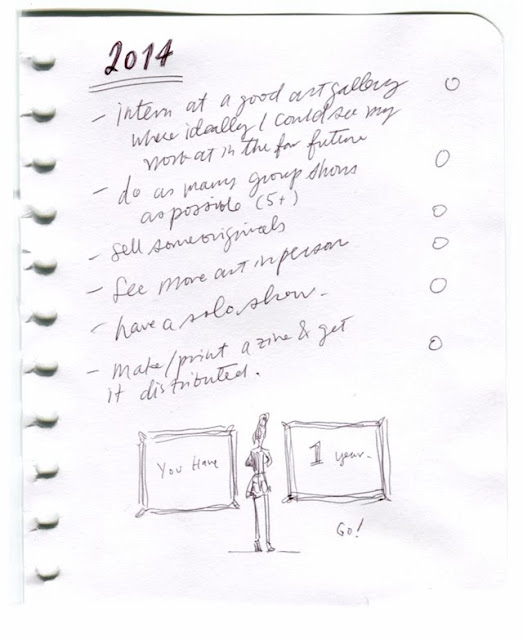 2014
- intern at a good art gallery
where ideally I could see my
work at in the far future
- do as many group shows
as possible (5+)
- sell some originals
- See more art in person
- have a solo show.
- make/print a zine & get
it distributed.
You Have
1 year.
Go!